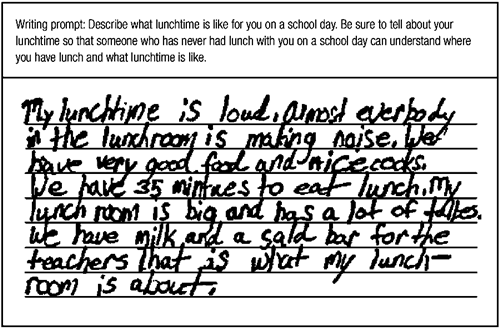 Writing prompt: Describe what lunchtime is like for you on a school day. Be sure to tell about your
lunchtime so that someone who has never had lunch with you on a school day can understand where
you have lunch and what lunchtime is like.
My lunchtime is loud. almost everbody
in the lunchroom is making noise. We
have very good food and nice cooks.
We have 35 mintues to eat lunch. My
lunch room is big and has a lot of tables.
We have milk and a sald bar for the
teachers that is what my lunch-
room is about.